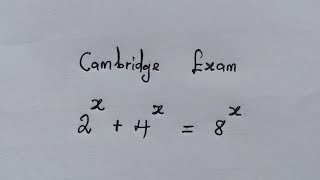 Cambridge Exam
2^x + 4^x = 8^x